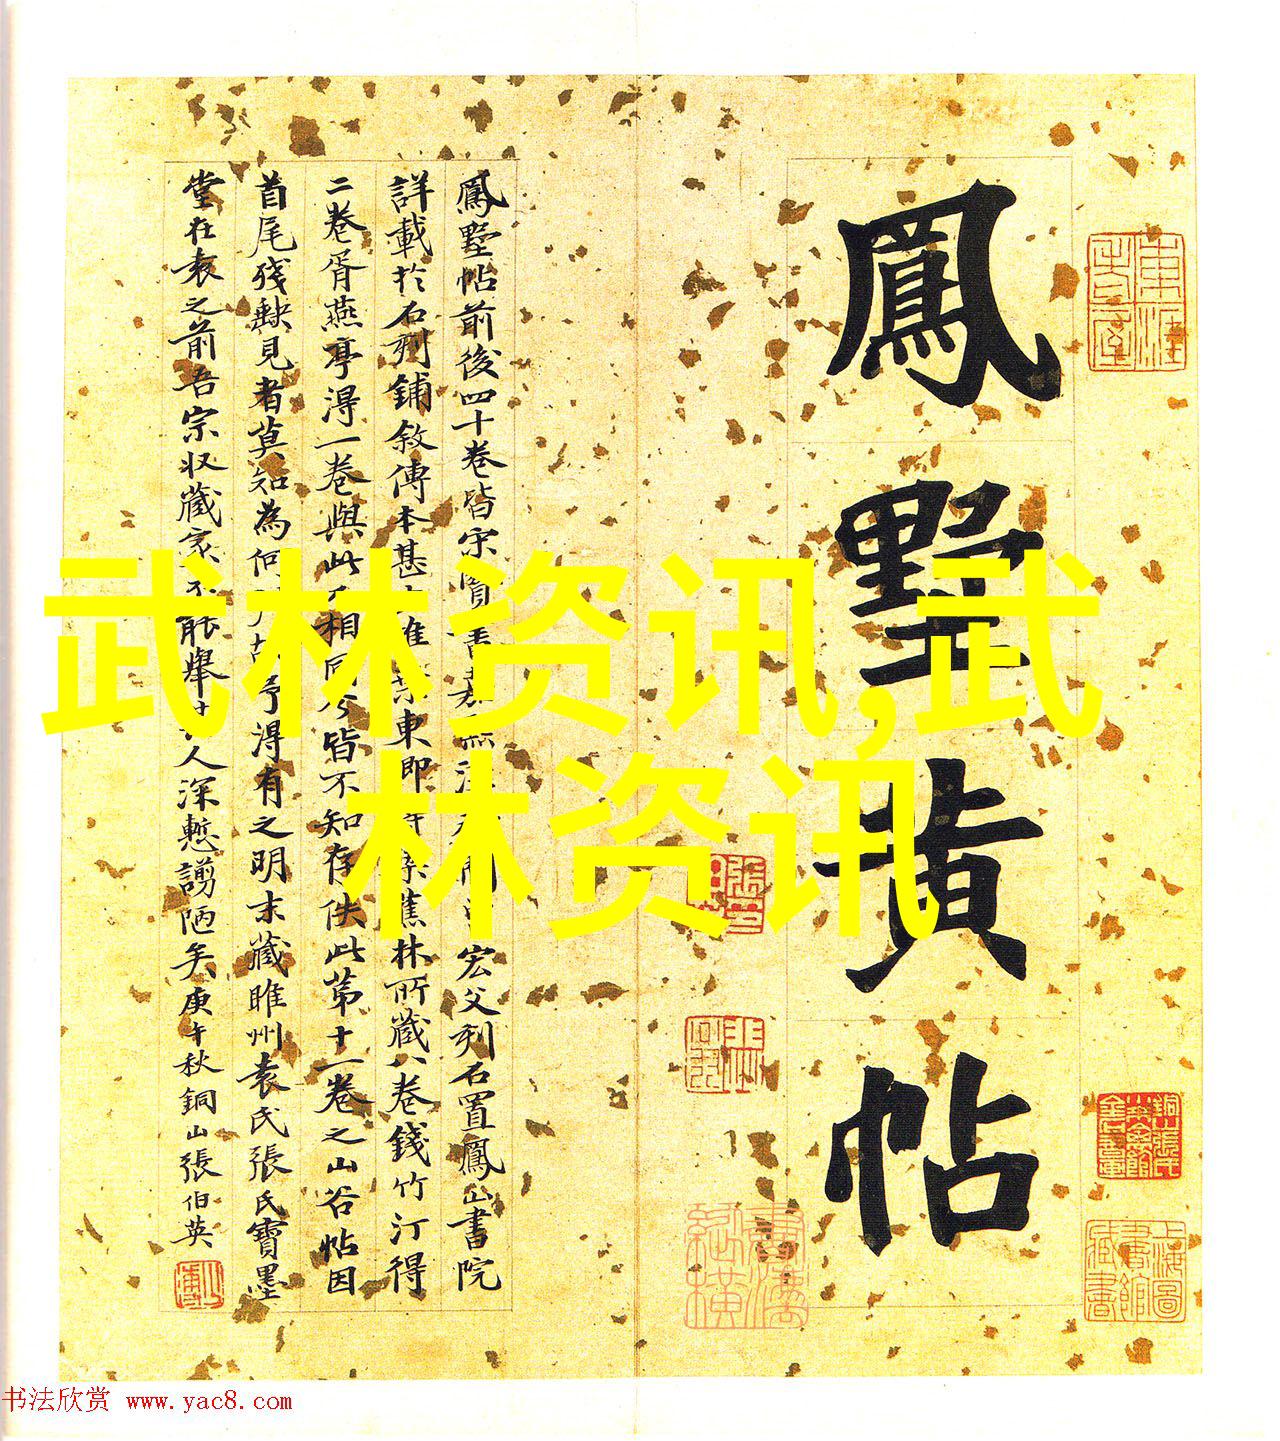 鳳墅黃帖
鳳墅帖前後四十卷皆宋賢書嘉熙
宏父刻石置鳳山書院
詳載於石刻鋪敘傳本甚
東即
蕉林所藏八卷錢竹汀得
二卷胥燕亭得一卷與此不相同
皆不知存佚此第十一卷之山谷帖因
首尾殘缺見者莫知為何
予得有之明末藏睢州袁氏張氏寶墨
堂在袁之前吾宗收藏家不能舉其人深慙譾陋矣庚午秋銅山張伯英
武林资讯,武
林资讯
上海圖書館藏書
书法欣赏 www.yac8.com